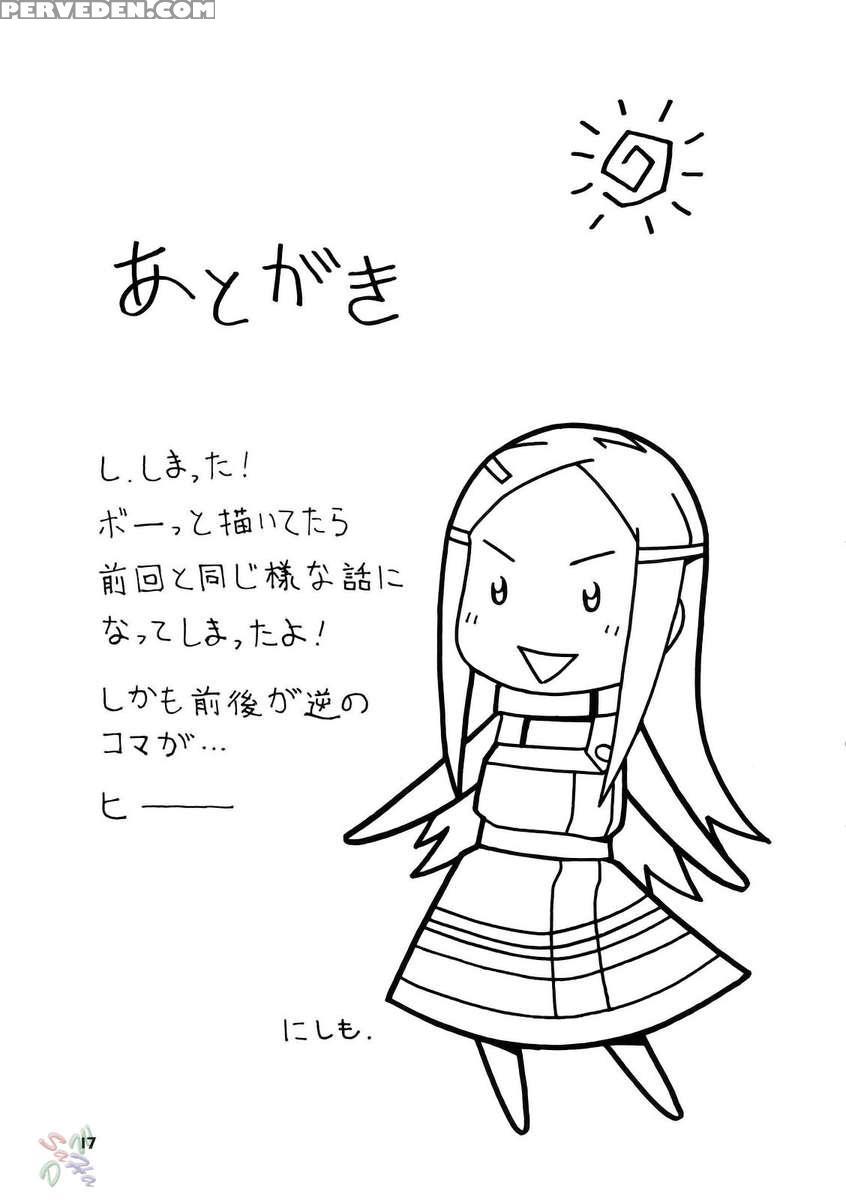 PERVEDEN.COM
あとがき
し.しまった!
ボーっと描いてたら
前回と同じ様な話に
なってしまったよ!
しかも前後が逆の
コマが…
ヒ――
にしも.
17